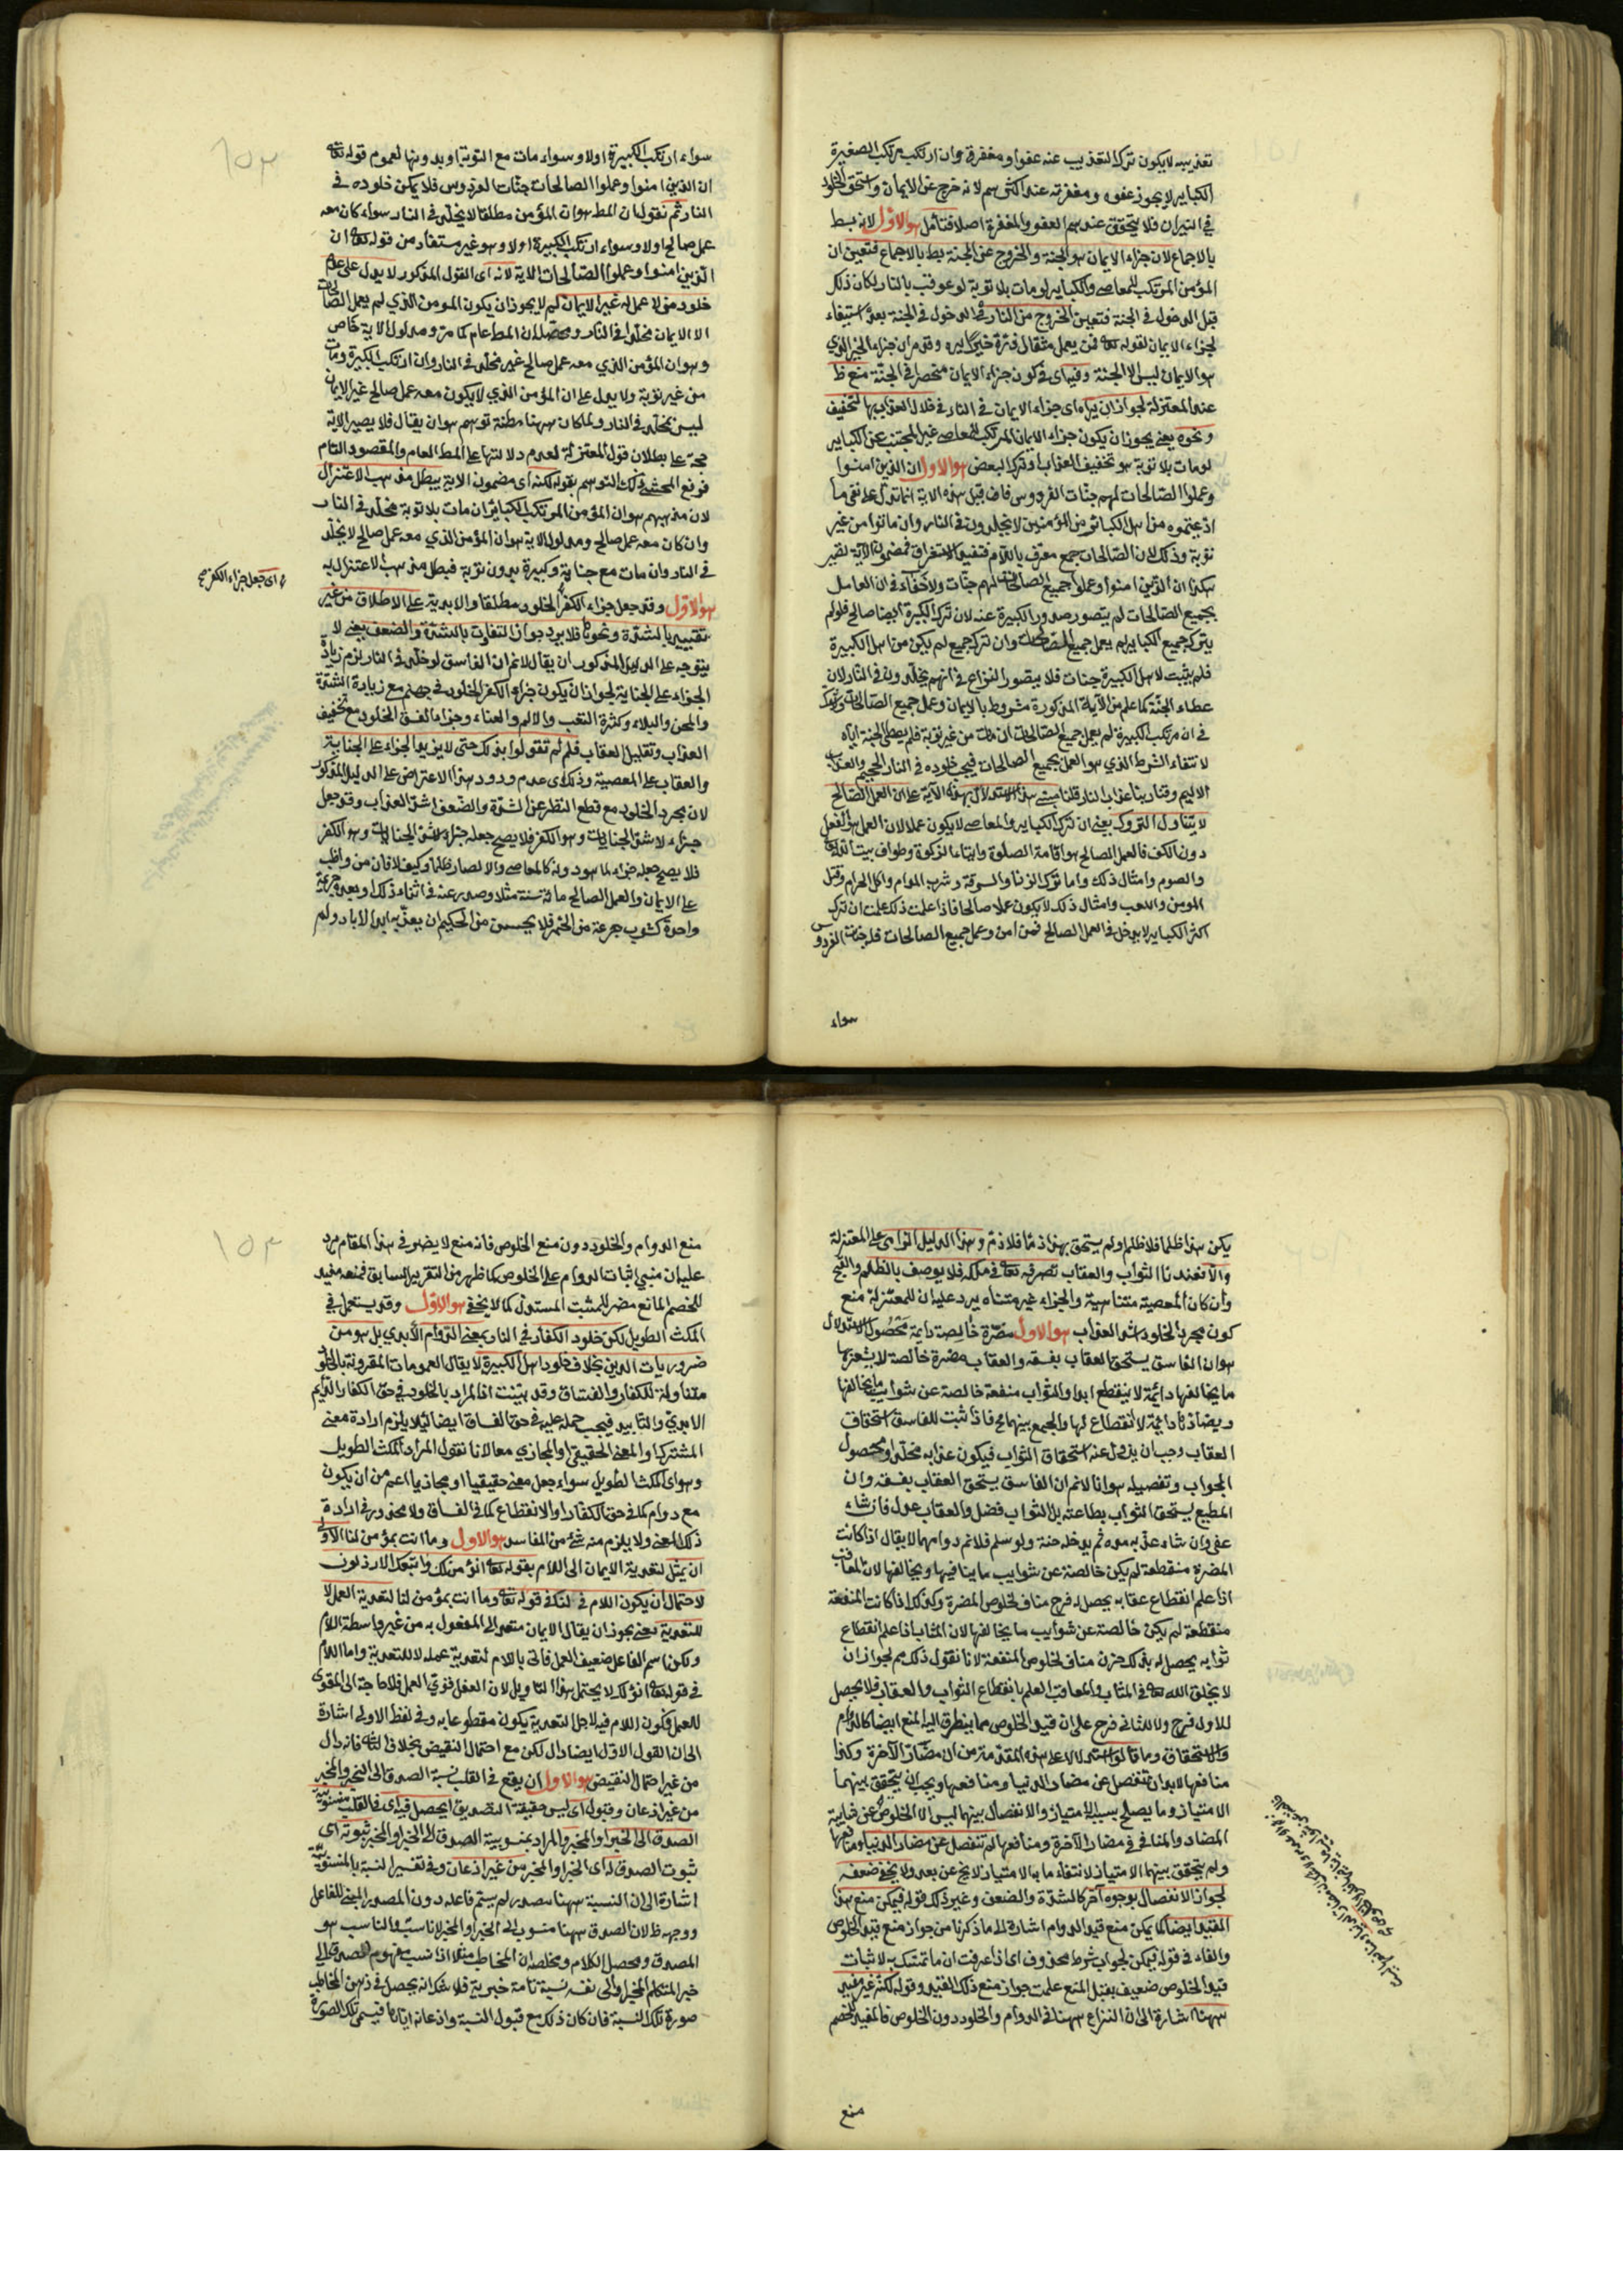 تعذيبه لا يكون ترك التعذيب عنه عفوا ومغفرة وان ارتكب مرتكب الصغيرة
الكباير لا يجوز عفوه ومغفرته عند اكثرهم لانه خرج عن الايمان واستحق الخلود
في النيران فلا يتحقق عندهم العفو والمغفرة اصلا فتأمل هو الاول لانه بط
بالاجماع لان جزاء الايمان هو الجنة والخروج عن الجنة بط بالاجماع فتعين ان
المؤمن المرتكب للمعاصي والكباير لو مات بلا توبة لو عوقب بالنار لكان ذلك
قبل الدخول في الجنة فتعين الخروج من النار في الدخول في الجنة بعد استيفاء
لجزاء الايمان لقوله تعه فمن يعمل مثقال ذرة خيرا يره وقد مر ان جزاء الخير الذي
هو الايمان ليس الا الجنة وفيه اى في كون جزاء الايمان منحصرا في الجنة منع ظ
عند المعتزلة لجواز ان يراه اى جزاء الايمان في النار في خلال العذاب بها لتخفيف
ونحوه يعني يجوز ان يكون جزاء الايمان المرتكب للمعاصي غير المجتنب عن الكباير
لو مات بلا توبة هو تخفيف العذاب او ترك البعض هو الاول ان الذين امنوا
وعملوا الصالحات لهم جنات الفردوس فان قيل هذه الاية انما تدل على نفي ما
ادعيتموه من اهل الكبائر من المؤمنين لا يخلدون في النار وان ماتوا من غير
توبة وذلك لان الصالحات جمع معرف باللام فتفيد الاستغراق فمضمون الاية تصير
هكذا ان الذين امنوا وعملوا جميع الصالحات لهم جنات ولا خفآء في ان العامل
بجميع الصالحات لم يتصور صدور الكبيرة عنه لان ترك الكبيرة ايضا صالح فلو لم
يترك جميع الكباير لم يعمل جميع الصالحات وان ترك جميع لم يكن من اهل الكبيرة
فلم يثبت لاهل الكبيرة جنات فلا يتصور النزاع في انهم يخلدون في النار لان
عطاء الجنة كما علم من الآية المذكورة مشروط بالايمان وعمل جميع الصالحات ولا شك
في ان مرتكب الكبيرة لم يعمل جميع الصالحات ان مات من غير توبة فلم يعطى الجنة اياه
لانتفاء الشرط الذي هو العمل بجميع الصالحات فيجب خلوده في النار الجحيم والعذاب
الاليم وقنا ربنا عذاب النار قلنا مبنى هذا الاستدلال بهذه الآية على ان العمل الصالح
لا يتناول التروك يعني ان ترك الكباير والمعاصي لا يكون عملا لان العمل هو الفعل
دون الكف فالعمل الصالح هو اقامة الصلوة وايتاء الزكوة وطواف بيت الله
والصوم وامثال ذلك واما ترك الزنا والسرقة وشرب المدام واكل الحرام وقتل
المؤمن واللعب وامثال ذلك لا يكون عملا صالحا فاذا علمت ذلك علمت ان ترك
اكثر الكباير لا يدخل في العمل الصالح فمن امن وعمل جميع الصالحات فله جنات الفردوس
سواء
سواء ارتكب الكبيرة اولا وسواء مات مع التوبة او بدونها لعموم قوله تعه
ان الذين امنوا وعملوا الصالحات جنات الفردوس فلا يمكن خلوده في
النار ثم نقول ان المط هو ان المؤمن مطلقا لا يخلد في النار سواء كان معه
عمل صالح اولا وسواء ارتكب الكبيرة اولا وهو غير مستفاد من قوله تعه ان
الذين امنوا وعملوا الصالحات الاية لانه اى القول المذكور لا يدل على عدم
خلود من لا عمل له غير الايمان لم لا يجوز ان يكون المؤمن الذي لم يعمل الصالحات
الا الايمان مخلدا في النار ومحصله ان المط عام كما مر ومدلول الاية خاص
وهو ان المؤمن الذي معه عمل صالح غير مخلد في النار وان ارتكب الكبيرة ومات
من غير توبة ولا يدل على ان المؤمن الذي لا يكون معه عمل صالح غير الايمان
ليس بمخلد في النار ولما كان ههنا مظنة توهم هو ان يقال فلا يصير الاية
حجة على بطلان قول المعتزلة لعدم دلالتها على المط العام والمقصود التام
فدفع المحشي ذلك التوهم بقوله لكنه اى مضمون الاية يبطل مذهب الاعتزال
لان مذهبهم هو ان المؤمن المرتكب الكبائر ان مات بلا توبة مخلد في النار
وان كان معه عمل صالح ومدلول الاية هو ان المؤمن الذي معه عمل صالح لا يخلد
في النار وان مات مع جناية وكبيرة بدون توبة فبطل مذهب الاعتزال به
هو الاول وقد جعل جزاء الكفر الخلود مطلقا والابدية على الاطلاق من غير
تقييد بالشدة ونحوها فلا يرد جواز التفاوت بالشدة والضعف يعني لا
يتوجه على الدليل المذكور ان يقال لا نم ان الفاسق لو خلد في النار لزم زيادة
الجزاء على الجناية لجواز ان يكون جزاء الكفر الخلود في جهنم مع زيادة الشدة
والمحن والبلاء وكثرة التعب والالم والعناء وجزاء الفسق الخلود مع تخفيف
العذاب وتقليل العقاب فلم لم تقولوا بذلك حتى لا يزيد الجزاء على الجناية
والعقاب على المعصية وذلك اى عدم ورود هذا الاعتراض على الدليل المذكور
لان مجرد الخلود مع قطع النظر عن الشدة والضعف اشد العذاب وقد جعل
جزاء لاشد الجنايات وهو الكفر فلا يصح جعله جزاء لاشد الجنايات وهو الكفر
فلا يصح جعله جزاء لما هو دونه كالمعاصي والا لصار ظلما وكيف لا فان من واظب
على الايمان والعمل الصالح مائة سنة مثلا وصدر عنه في اثناء ذلك او بعده جريمة
واحدة كشرب جرعة من الخمر فلا يحسن من الحكيم ان يعذبه ابد الاباد ولم
اى جعل جزاء الكفر صح
١٥٣
يكن هذا ظلما فلا ظلم ولم يستحق بهذا ذما فلا ذم وهذا الدليل الزامى على المعتزلة
والا فعندنا الثواب والعقاب تصرفه تعه في ملكه فلا يوصف بالظلم والقبح
وان كان المعصية متناهية والجزاء غير متناه يرد عليه ان للمعتزلة منع
كون مجرد الخلود اشد العذاب هو الاول مضرة خالصة دايمة محصول الاستدلال
هو ان الفاسق يستحق العقاب بفسقه والعقاب مضرة خالصة لا يشوبها
ما يخالفها دائمة لا ينقطع ابدا والثواب منفعة خالصة عن شوايب ما يخالفها
ويضادها دائمة لا انقطاع لها والجمع بينهما مح فاذا ثبت للفاسق استحقاق
العقاب وجب ان يزول عنه استحقاق الثواب فيكون عذابه مخلدا ومحصول
الجواب وتفصيله هو انا لا نم ان الفاسق يستحق العقاب بفسقه وان
المطيع يستحق الثواب بطاعته بل الثواب فضل والعقاب عدل فان شاء
عفى وان شاء عذبه مدة ثم يدخله جنة ولو سلم فلا نم دوامهما لا يقال اذا كانت
المضرة منقطعة لم يكن خالصة عن شوايب ما ينافيها ويخالفها لان المعاقب
اذا علم انقطاع عقابه يحصل له فرح مناف لخلوص المضرة وكذلك اذا كانت المنفعة
منقطعة لم يكن خالصة عن شوايب ما يخالفها لان المثاب اذا علم انقطاع
ثوابه يحصل له بذلك حزن مناف لخلوص المنفعة لانا نقول ذلك مم لجواز ان
لا يخلق الله تعه في المثاب والمعاقب العلم بانقطاع الثواب والعقاب فلا يحصل
للاول فرح ولا للثاني فرح على ان قيد الخلوص مما يتطرق اليه المنع ايضا كالدوام
والاستحقاق وما قالوا استدلالا على هذه المقدمة من ان مضار الآخرة وكذا
منافعها لا بد ان تنفصل عن مضار الدنيا ومنافعها ويجب ان يتحقق بينهما
الامتياز وما يصلح سببا للامتياز والانفصال بينهما ليس الا الخلوص عن شايبة
المضاد والمنافي في مضار الآخرة ومنافعها لم تنفصل عن مضار الدنيا ومنافعها
ولم يتحقق بينهما الامتياز لانتفاء ما به الامتياز لا يخ عن بعد ولا يخفى ضعفه
لجواز الانفصال بوجوه آخر كالشدة والضعف وغير ذلك قوله فيمكن منع هذا
القيد ايضا كما يمكن منع قيد الدوام اشارة الى ما ذكرنا من جواز منع قيد الخلوص
والفاء في قوله فيمكن لجواب شرط محذوف اى اذا عرفت ان ما تمسك به لاثبات
قيد الخلوص ضعيف يقبل المنع علمت جواز منع ذلك القيد وقوله لكنه غير مفيد
ههنا اشارة الى ان النزاع ههنا في الدوام والخلود دون الخلوص فالمفيد للخصم
منع
منع الدوام والخلود دون منع الخلوص فانه منع لا يضر في هذا المقام يرد
عليه ان مبنى اثبات الدوام على الخلوص كما ظهر من التقرير السابق فمنعه مفيد
للخصم المانع مضر للمثبت المستدل كما لا يخفى هو الاول وقد يستعمل في
المكث الطويل لكن خلود الكفار في النار بمعنى الدوام الأبدي بل هو من
ضروريات الدين بخلاف خلود اهل الكبيرة لا يقال العمومات المقرونة بالخلود
متناولة للكفار والفساق وقد بينت ان المراد بالخلود في حق الكفار الدايم
الابدي والتابيد فيجب حمله عليه في حق الفساق ايضا لئلا يلزم ارادة معنى
المشترك او المعنى الحقيقي او المجازي معا لانا نقول المراد المكث الطويل
وهو اى المكث الطويل سواء جعل معنى حقيقيا او مجازيا اعم من ان يكون
مع دوام كما في حق الكفار او الانقطاع كما في الفساق ولا محذور في ارادة
ذلك المعنى ولا يلزم منه شئ من المفاسد هو الاول وما انت بمؤمن لنا الاولى
ان يمثل لتعدية الايمان الى اللام بقوله تعه انؤمن لك واتبعك الارذلون
لاحتمال ان يكون اللام في لنا في قوله تعه وما انت بمؤمن لنا لتقوية العمل لا
للتعدية يعني يجوز ان يقال الايمان متعد الى المفعول به من غير واسطة اللام
ولكن اسم الفاعل ضعيف العمل فاتى باللام لتقوية عمله لا للتعدية واما اللام
في قوله تعه انؤمن لك لا يحتمل هذا التاويل لان الفعل قوي العمل فلا حاجة الى المقوى
للعمل فكون اللام فيه لاجل التعدية يكون مقطوعا به وفي لفظ الاولى اشارة
الى ان القول الاول ايضا دال لكن مع احتمال النقيض بخلاف الثاني فانه دال
من غير احتمال النقيض هو الاول ان يقع في القلب نسبة الصدق الى الخبر والمخبر
من غير اذعان وقبول اى ليس حقيقة التصديق ان يحصل فيه اى في القلب منسوبية
الصدق الى الخبر او المخبر والمراد بمنسوبية الصدق الى الخبر او المخبر ثبوته اى
ثبوت الصدق له اى الخبر او المخبر من غير اذعان وفي تفسير النسبة بالمنسوبية
اشارة الى ان النسبة ههنا مصدر لم يسم فاعله دون المصدر المبني للفاعل
ووجهه ظ لان الصدق ههنا منسوب الى الخبر او المخبر لا ناسب والناسب هو
المصدق ومحصل الكلام ومخلصه ان المخاطب مثلا اذا نسب مفهوم الصدق الى
خبر المتكلم المخبر او الى نفسه نسبة تامة خبرية فلا شك انه يحصل في ذهن المخاطب
صورة تلك النسبة فان كان ذلك مع قبول النسبة واذعانه اياها فيسمى تلك الصورة
١٥٤